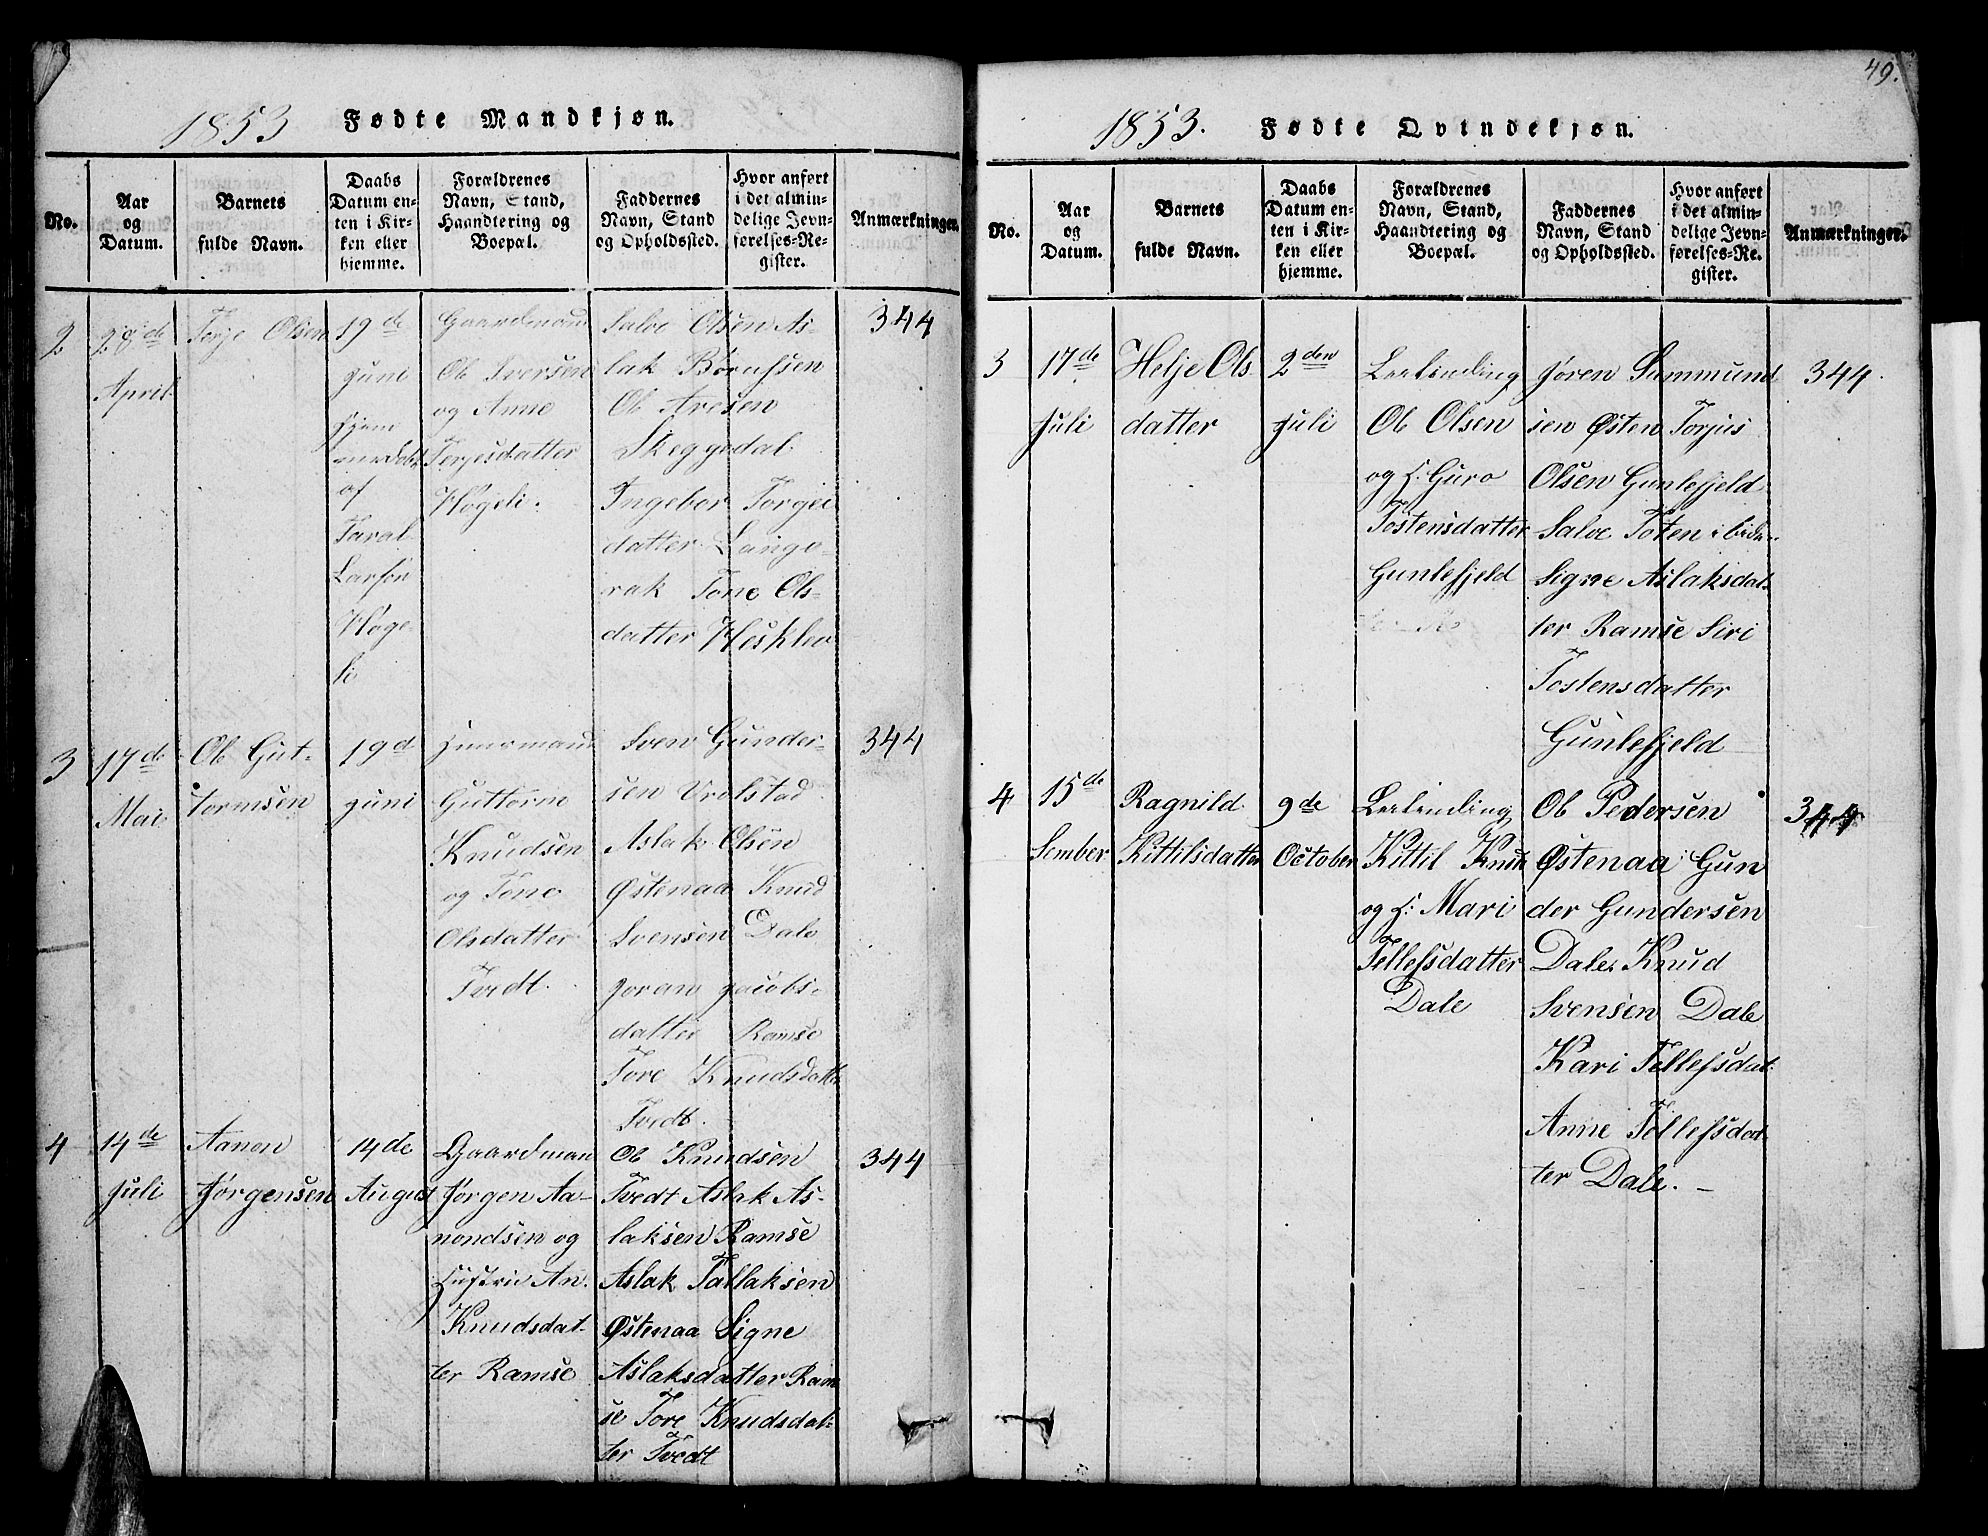 49.
1853 Fødte Mandkjøn.
No.
Aar
og
Datum.
Barnets
fulde Navn.
Daabs
Datum en-
ten i Kir-
ken eller
hjemme.
Forældrenes
Navn, Stand,
Haandtering og
Boepæl.
Faddernes
Navn, Stand
og Opholdssted.
Hvor anført
i det almin-
delige Jevn-
førelses-Re-
gister.
Anmærkninger.
2
28de
April
Terje Olsen
19de
Juni
Hjem
medøbt
af
Taral
Larsen
Høge-
li
Gaardmand
Ole Iversen
og Anne
Terjesdatter
Høgeli.
Salve Olsen As-
lak Børufsen
Ole Aresen
Skeggedal
Ingebor Torgei
datter Lango-
rak Tone Ols-
datter Hesklev
344
3
17de
Mai
Ole Gut-
tormsen
19d
Juni
Huusmand
Guttorm
Knudsen
og Tone
Olsdatter
Tvedt.
Sven Gunder-
sen Vrolstad
Aslak Olsen
Østenaa Knud
Svensen Dale
Joran Jacobs-
datter Ramse
Tore Knudsdatter
Tvedt.
344
4
14de
Juli
Aanon
Jørgensen
14de
August
Gaardman
Jørgen Aa-
nondsen og
Hustrue An.
Knudsdat-
ter Ramse
Ole Knudsen
Tvedt Aslak As-
laksen Ramse
Aslak Tallaksen
Østenaa Signe
Aslaksdatter Ram
se Tore Knudsdat-
ter Tvedt
344
1853. Fødte Qvindekjøn.
No.
Aar
og
Datum.
Barnets
fulde Navn.
Daabs
Datum en-
ten i Kir-
ken eller
hjemme.
Forældrenes
Navn, Stand,
Haandtering og
Boepæl.
Faddernes
Navn, Stand
og Opholdssted.
Hvor anført
i det almin-
delige Jevn-
førelses-Re-
gister.
Anmærkninger.
3
17de
Juli
Helje Ols
datter
2den
Juli
Leilending
Ole Olsen
og H. Guro
Tostensdatter
Gunlefjeld
Jøren Summund
sen Østen Torjus
Olsen Gunlefjeld
Salve Toten
Signe Aslaksdat-
ter Ramse Siri
Tostensdatter
Gunlefjeld
344.
4
15de
Sember
Ragnild
Kittilsdatter
9de
October
Leilending
Kittil Knud
og H: Mari
Tellefsdatter
Dale
Ole Pedersen
Østenaa Gun
der Gundersen
Dale Knud
Svensen Dale
Kari Tellefsdat
Anne Tellefsdat
ter Dale. —
344